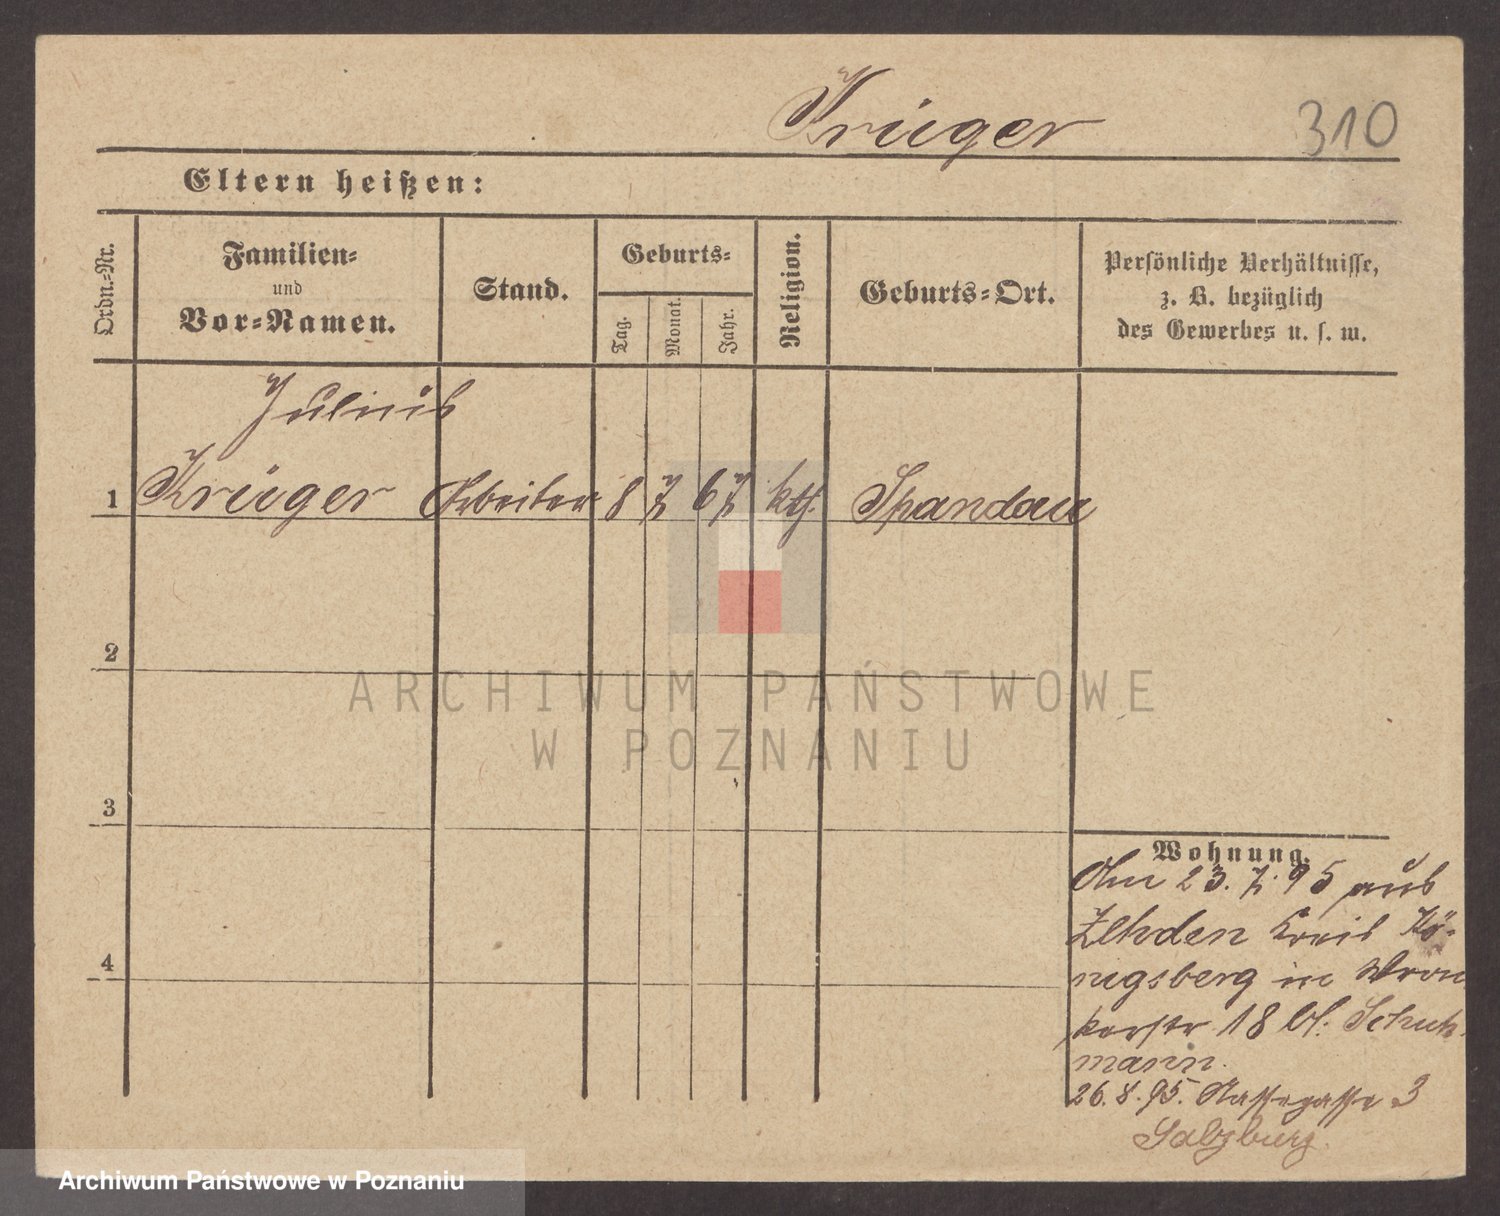 Krüger 310
Eltern heißen:
Ordn.-Nr.
Familien-
und
Vor-Namen.
Stand.
Geburts-
Tag.
Monat.
Jahr.
Religion.
Geburts-Ort.
Persönliche Verhältnisse,
z. B. bezüglich
des Gewerbes u. s. w.
Julius
1 Krüger Arbeiter 8 7 67 kth. Spandau
2
3
4
ARCHIWUM PAŃSTWOWE
W POZNANIU
Wohnung.
Am 23. 7. 95 aus
Zehden Kreis Kö-
nigsberg in Wron
kerstr 18 bl: Schuh-
mann.
26. 8. 95. Nassegasse 3
Salzburg.
Archiwum Państwowe w Poznaniu